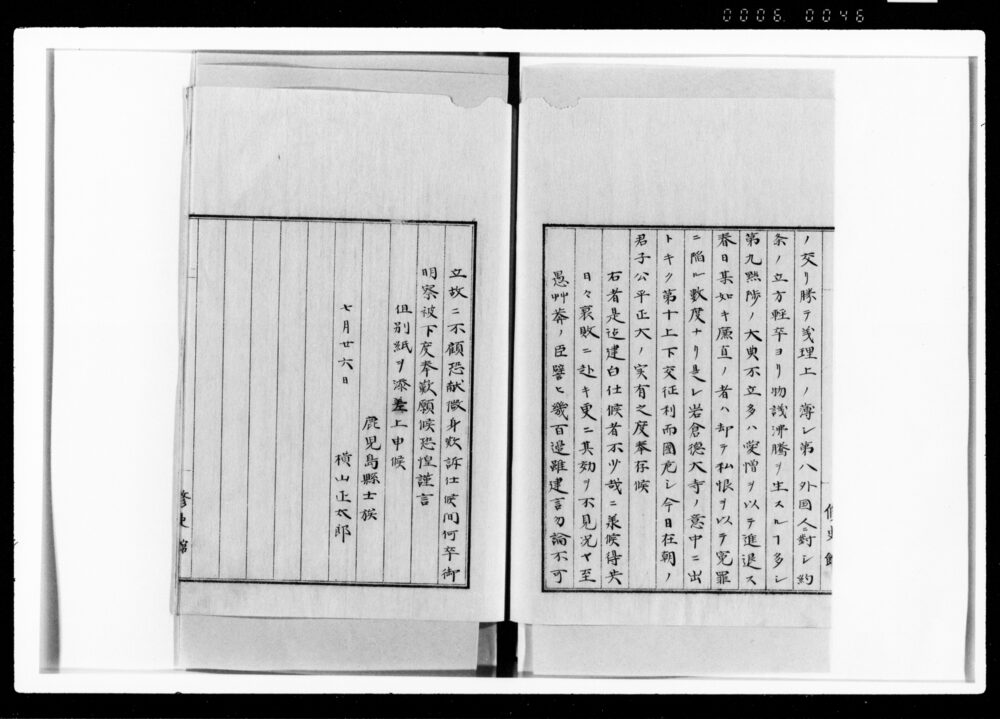 0006 0046
ノ交リ勝テ義理上ノ薄シ第八外國人ニ對シ約
条ノ立方軽卒ヨリ物議沸騰ヲ生スルヿ多シ
第九黜陟ノ大典不立多ハ愛憎ヲ以テ進退ス
春日某如キ廉直ノ者ハ却テ私恨ヲ以テ寃罪
ニ陥ル數度ナリ是レ岩倉徳大寺ノ意中ニ出
トキク第十上下交征利而國危シ今日在朝ノ
君子公平正大ノ実有之度奉存候
右者是迠建白仕候者不少哉ニ承候得共
日々衰敗ニ赴キ更ニ其効ヲ不見況ヤ至
愚艸莽ノ臣譬ヒ幾百邉雖建言勿論不可
修史館
立故ニ不顧恐献微身歎訴仕候間何卒御
明察被下度奉歎願候恐惶謹言
但別紙ヲ添上申候
鹿児島縣士族
七月廿六日 横山正太郎
修史館